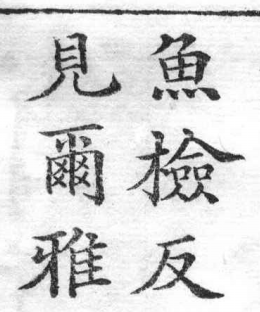 魚檢反
見爾雅